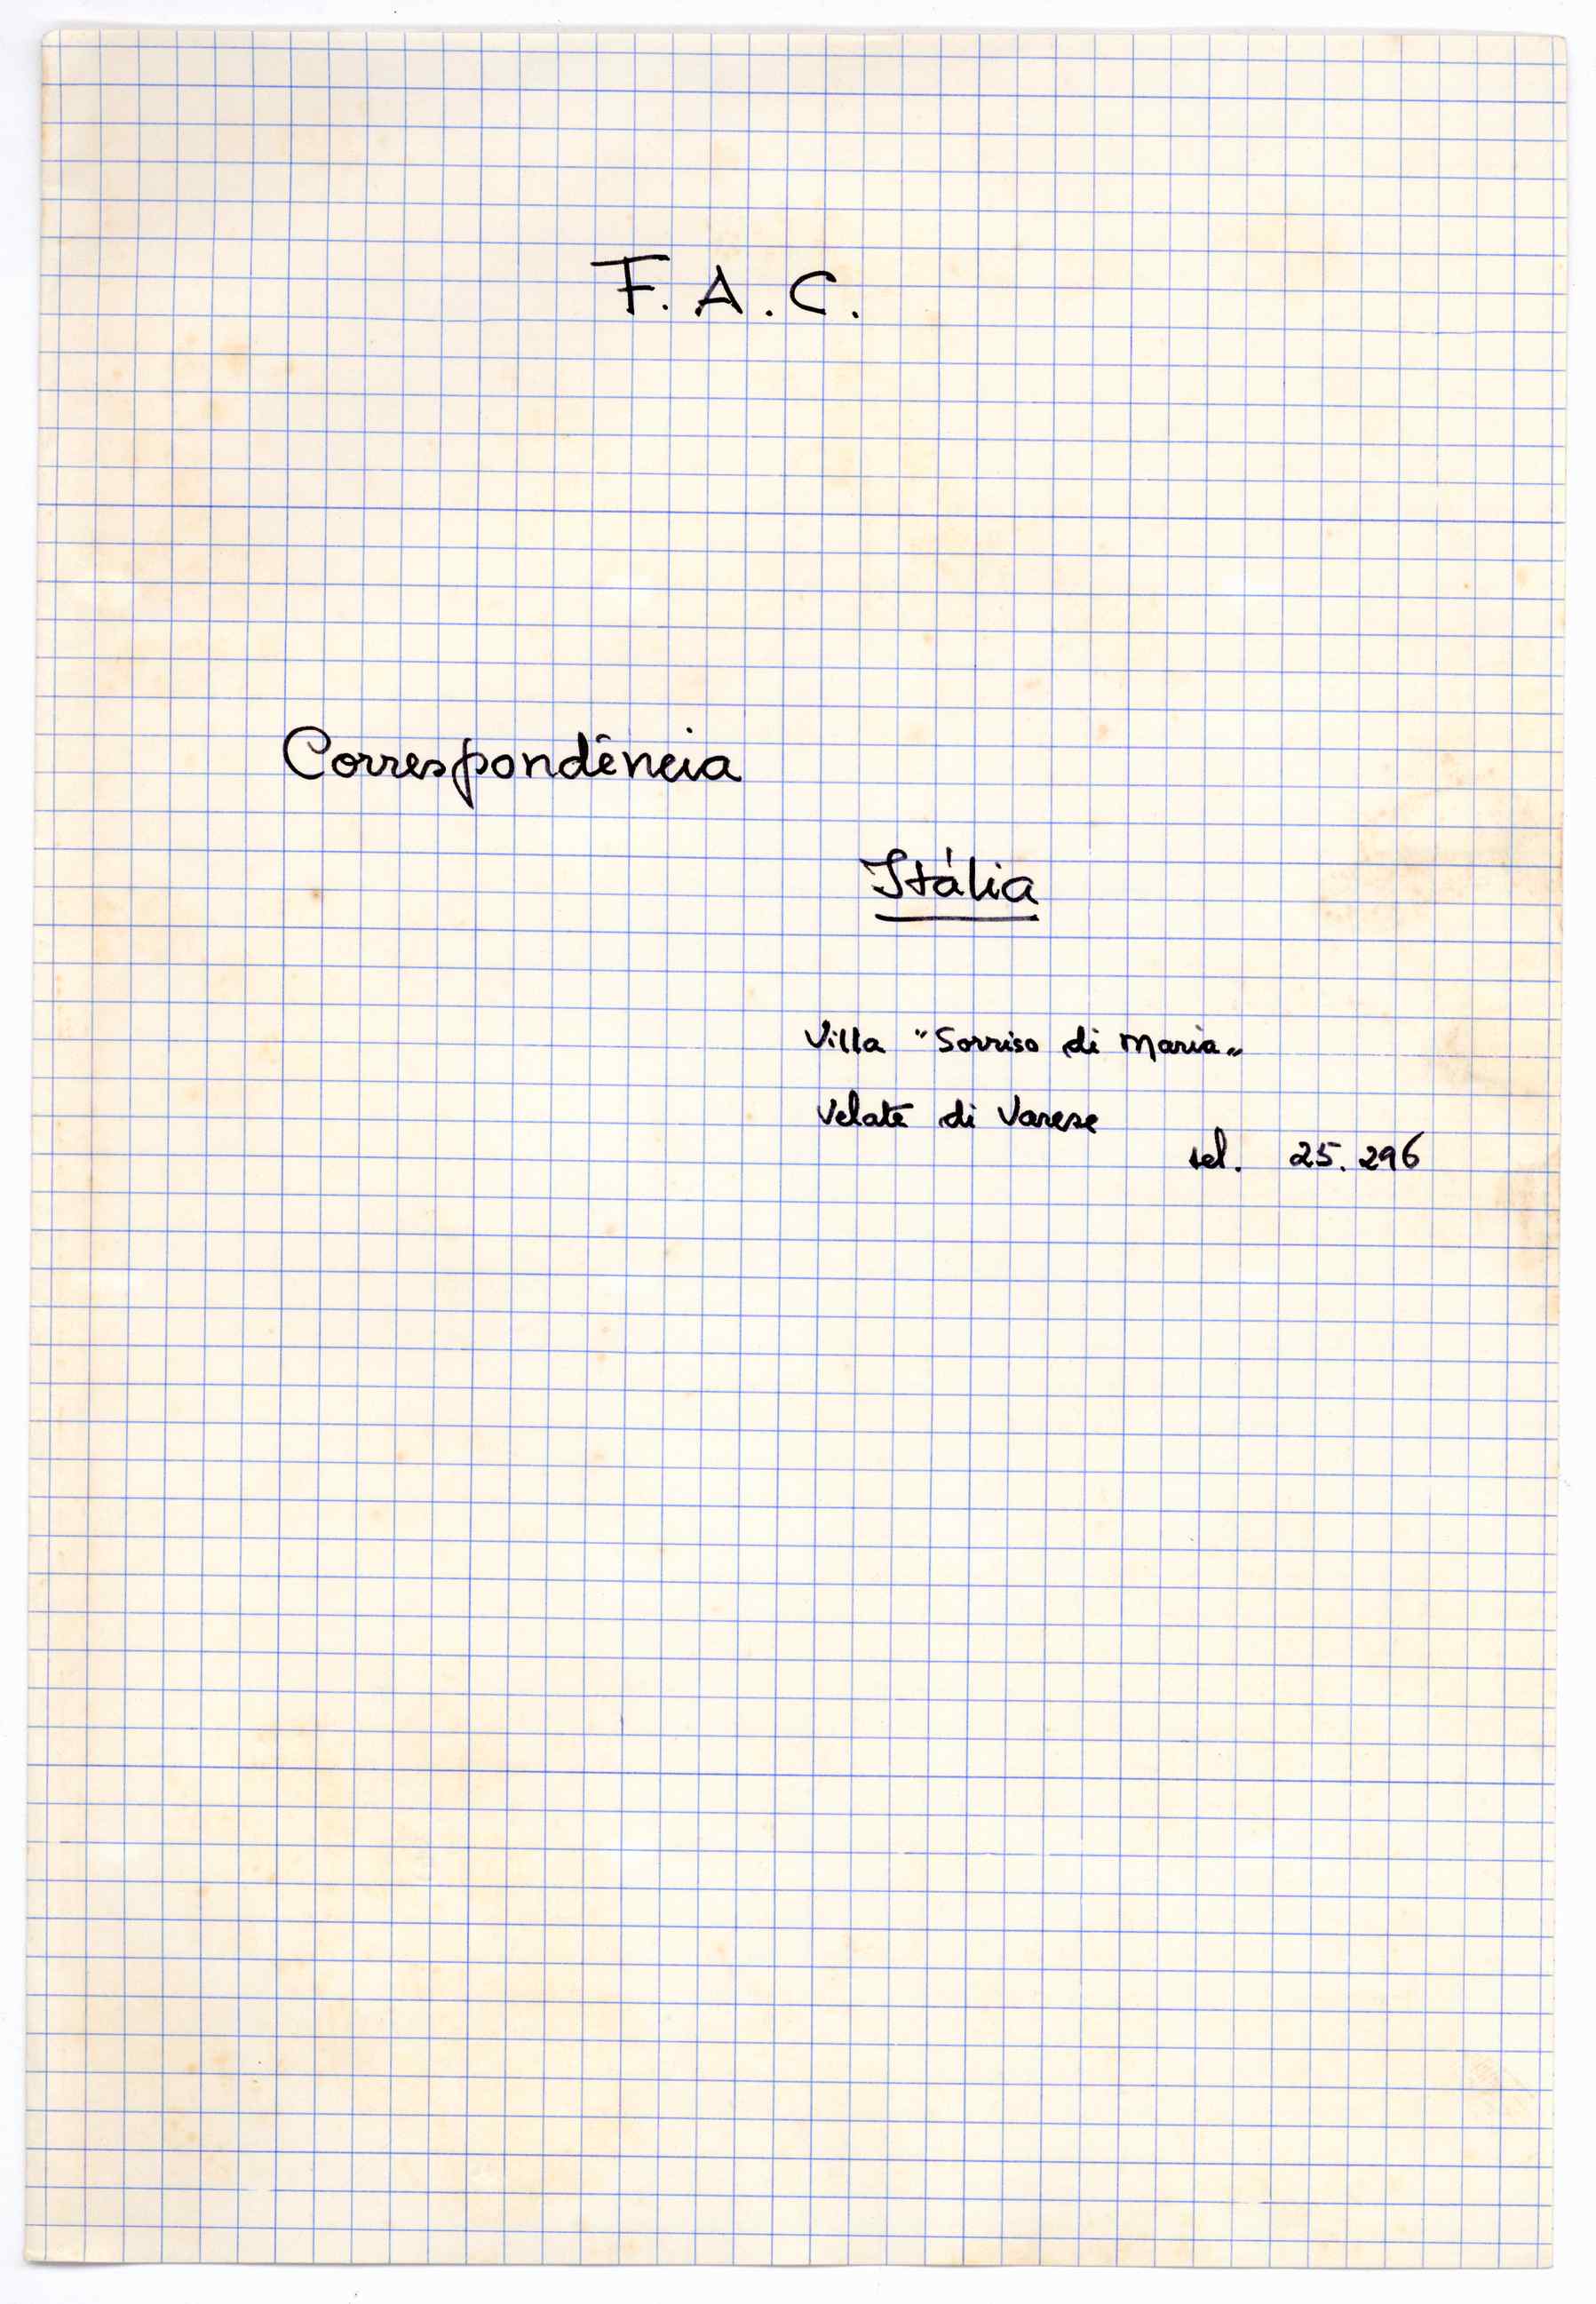 F. A. C.
Correspondência
Itália
Villa "Sorriso di Maria"
Velate di Varese
tel. 25.296